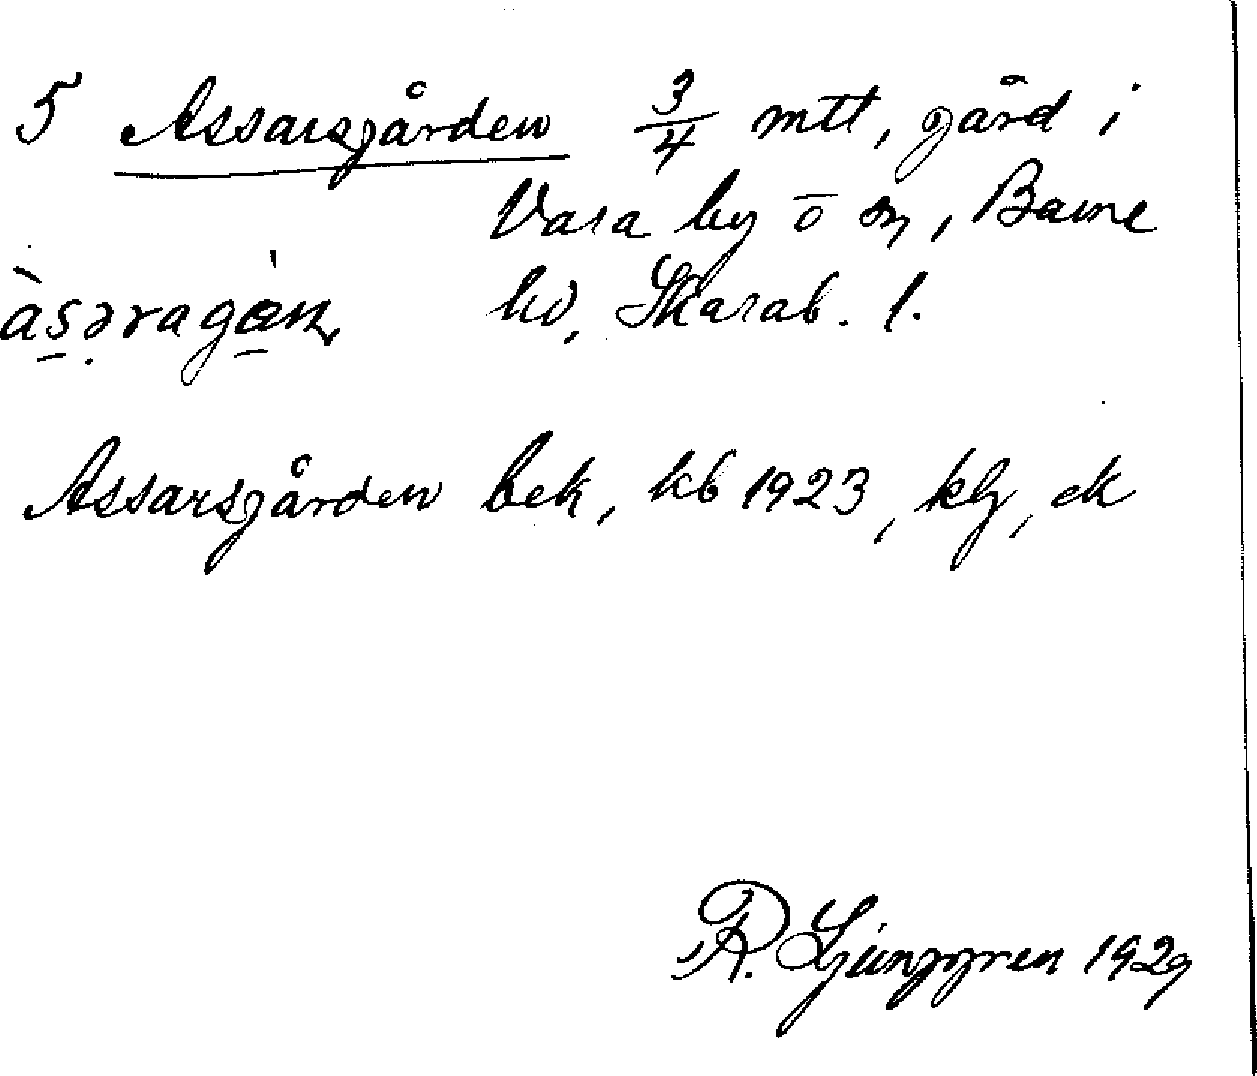 5 Assarsgården 3/4 mtt, gård i
Vara by o sn, Barne
àsəragàn hd, Skarab. l.
Assarsgården bek, kb 1923, klg, ek
R. Ljunggren 1929